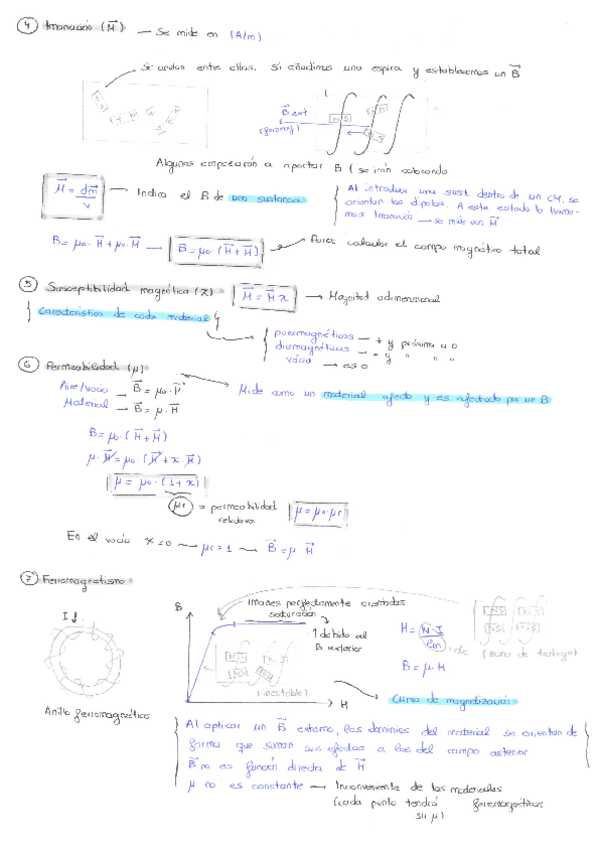 4 Imanación (M) — Se mide en (A/m)
Se anulan entre ellas. Si añadimos una espira y establecemos un B
B ext
Algunas empezarán a aportar B (se irán colocando
M = dm/V → Indica el B de una sustancia
Al introducir una sust. dentro de un CM, se
orientan los dipolos. A este estado lo llama-
mos Imanació → se mide con M
B = μ0 · H + μ0 · M → B = μ0 · (H + M) → Para calcular el campo magnético total
5 Susceptibilidad magnética (χ) M = H χ → Magnitud adimensional
Característica de cada material
paramagnéticas → + y próxima a 0
diamagnéticas → - y " " "
vacío → es 0
6 Permeabilidad (μ)
Aire/vacío → B = μ0 · H
Material → B = μ · H
Mide como un material afecta y es afectado por un B
B = μ0 · (H + M)
μ · H = μ0 · (H + χ · H)
μ = μ0 · (1 + χ)
μr = permeabilidad
relativa
μ = μ0 · μr
En el vacío χ = 0 → μr = 1 → B = μ · H
7 Ferromagnetismo
I
B
Imanes perfectamente orientados
saturación
1 debido al
B exterior
(inestable)
H
H = N · I / lm
B = μ · H
(zona de trabajo)
Curva de magnetización
Anillo ferromagnético
Al aplicar un B externo, los dominios del material se orientan de
forma que suman sus efectos a los del campo anterior
B no es función directa de H
μ no es constante → Inconveniente de los materiales
(cada punto tendrá ferromagnéticos
su μ)